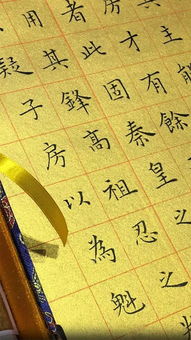 主
房才有餘
者此固秦皇之
用其鋒高祖忍之
疑子房以為魁